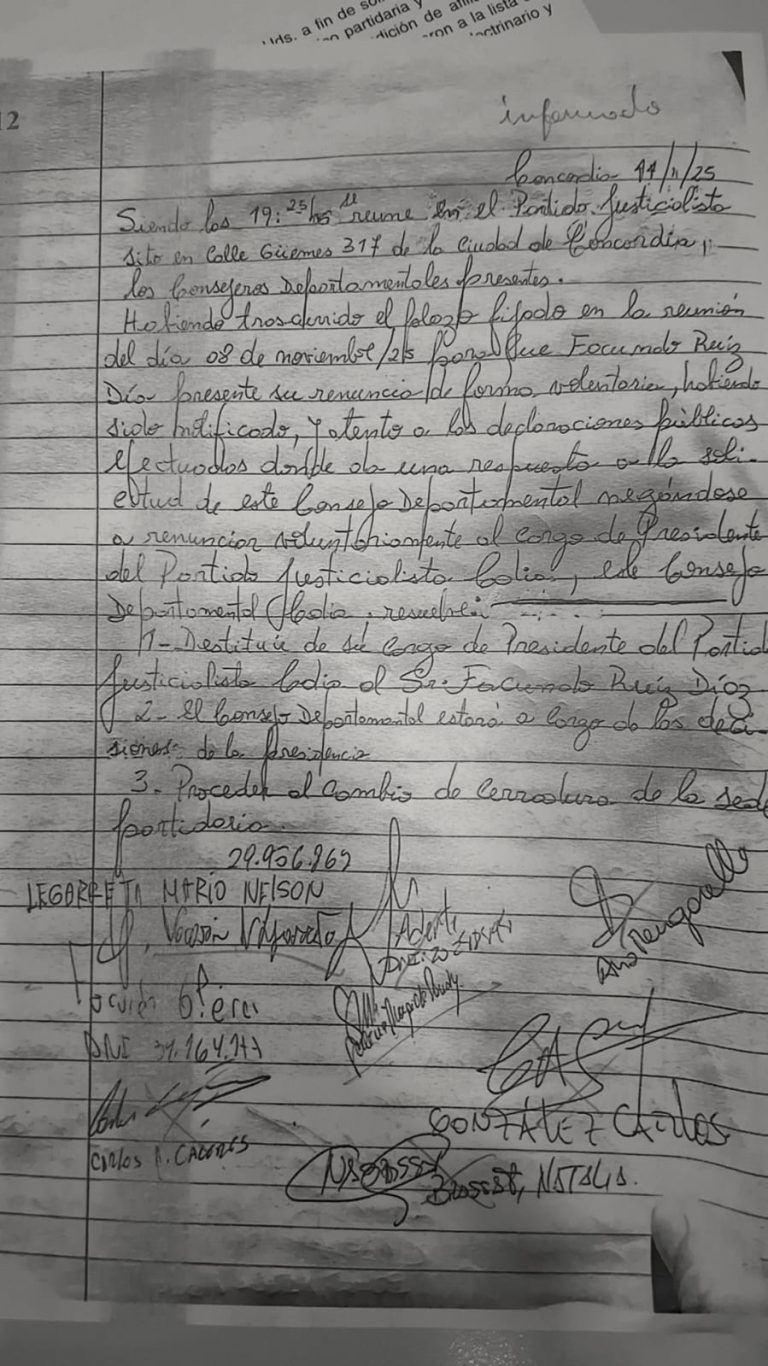 Uds. a fin de
partidaria y
dición de
ron a la lista
octrinario y
12
informado
Concordia 11/11/25
Siendo las 19:25hs se reune en el Partido Justicialista
sito en Calle Güemes 317 de la Ciudad de Concordia,
los Consejeros Departamentales presentes.
Habiendo trascurrido el plazo fijado en la reunión
del día 08 de noviembre/25 para que Facundo Ruiz
Díaz presente su renuncia de forma voluntaria, habiendo
sido notificado, y atento a las declaraciones públicas
efectuadas donde da una respuesta a la soli-
citud de este Consejo Departamental negándose
a renunciar voluntariamente al cargo de Presidente
del Partido Justicialista Cdia, este Consejo
Departamental Cdia, resuelve:
1- Destituir de su cargo de Presidente del Partid
Justicialista Cdia al Sr. Facundo Ruiz Díaz
2- El Consejo Departamental estará a cargo de las deci-
siones de la presidencia
3. Proceder al cambio de cerradura de la sede
partidaria.
29.956.969
LEGARRETA MARIO NELSON
DNI
DNI
CARLOS A. CACERES
GONZALEZ CARLOS
BROSSET, NATALIA.